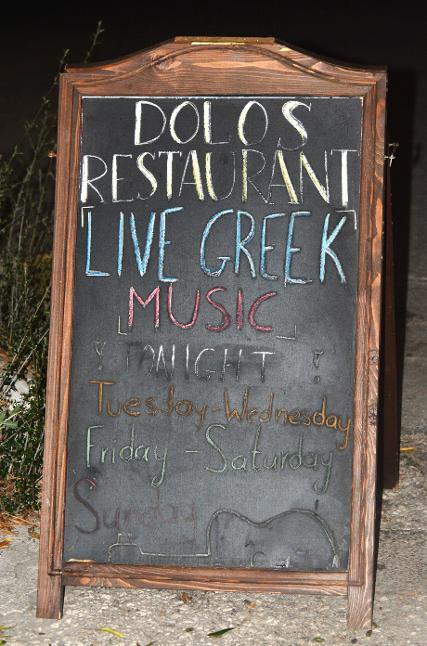 DOLOS
RESTAURANT
LIVE GREEK
MUSIC
! TONIGHT !
Tuesday-Wednesday
Friday - Saturday
Sunday